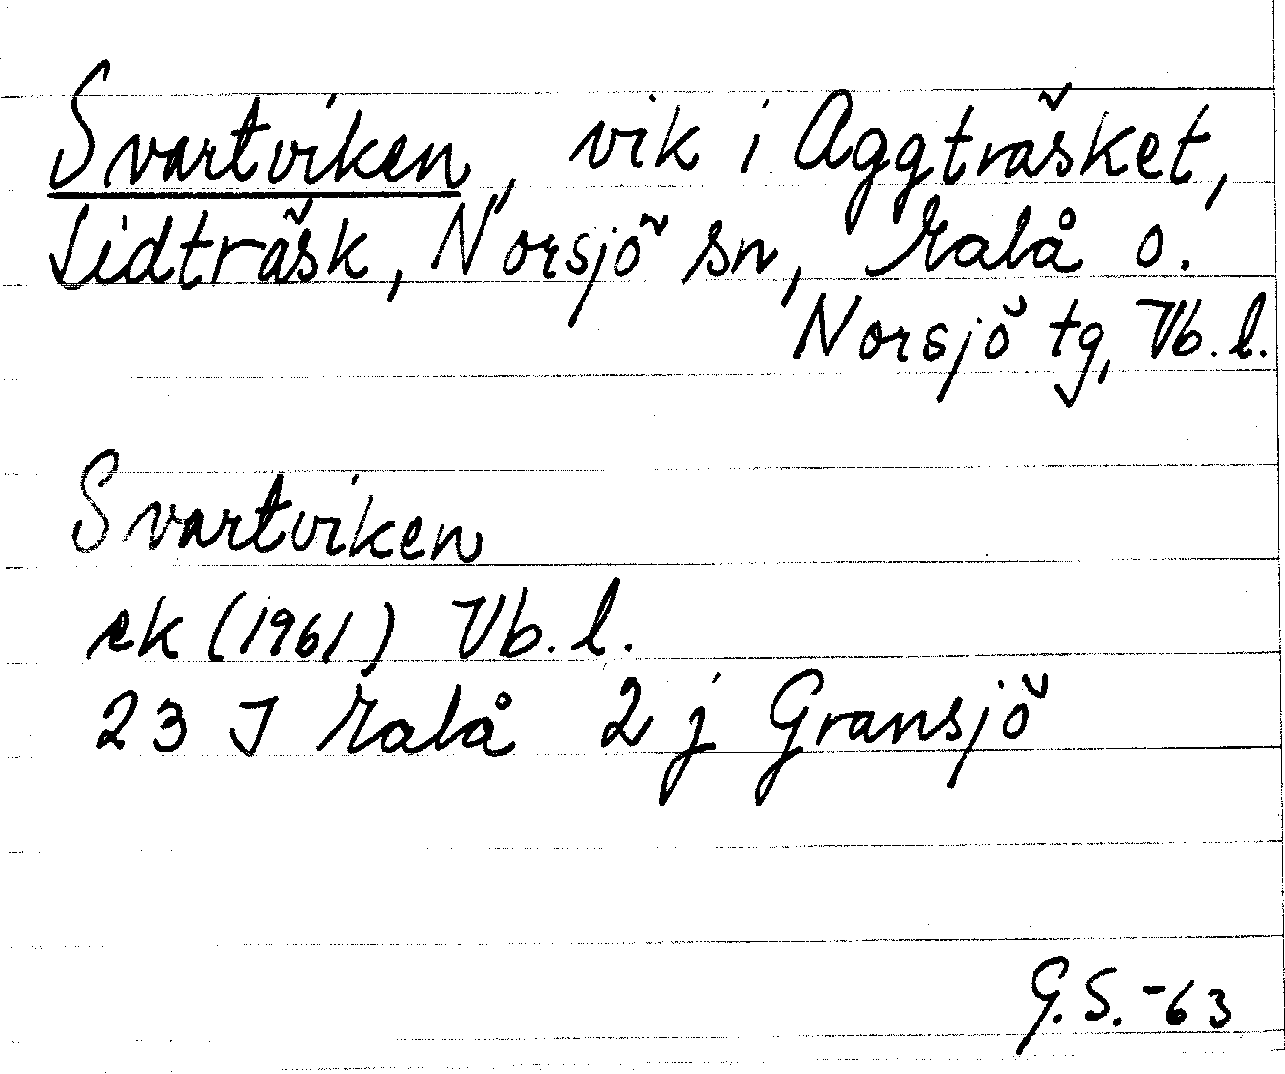 Svartviken, vik i Aggträsket,
Lidträsk, Norsjö sn, Malå o.
Norsjö tg, Vb. l.
Svartviken
ek (1961) Vb. l.
23 J Malå 2 j Gransjö
G. S. -63